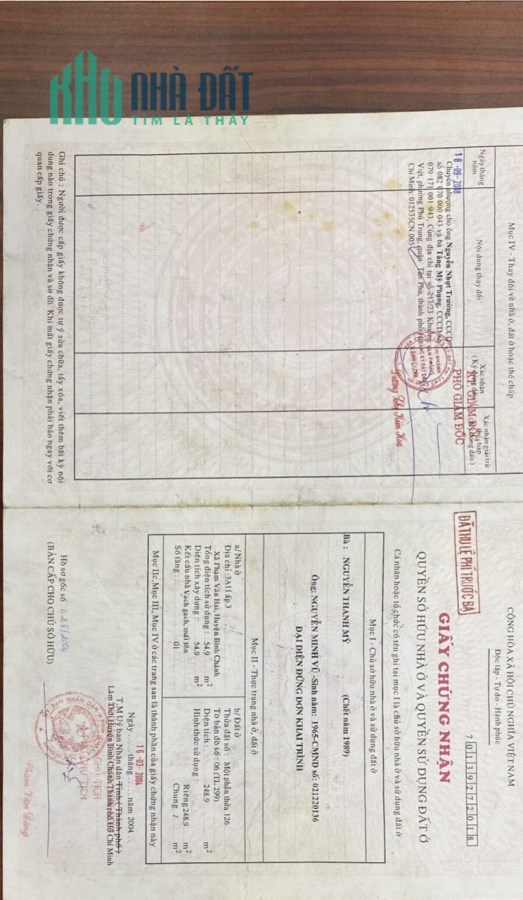 KHO NHÀ ĐẤT
TÌM LÀ THẤY
Mục IV - Thay đổi về nhà ở, đất ở hoặc thế chấp
Ngày tháng năm
Nội dung thay đổi
Xác nhận
Xác nhận giải trừ thế chấp
Chuyển nhượng cho ông Nguyễn Nhựt Trường, CCCD
số 082 070 000 043 và bà Tăng Mỹ Phụng, CCCD
079 171 001 943, Cùng địa chỉ tại số
Việt, phường Phú Trung, quận Tân Phú, thành phố
Chí Minh. 012535CN.005
KT. GIÁM ĐỐC
PHÓ GIÁM ĐỐC
Ghi chú : Người được cấp giấy không được tự ý sửa chữa, tẩy xóa, viết thêm bất kỳ nội
dung nào trong giấy chứng nhận và sơ đồ. Khi mất giấy chứng nhận phải báo ngay với cơ
quan cấp giấy.
CỘNG HÒA XÃ HỘI CHỦ NGHĨA VIỆT NAM
Độc lập - Tự do - Hạnh phúc
ĐÃ THU LỆ PHÍ TRƯỚC BẠ
GIẤY CHỨNG NHẬN
QUYỀN SỞ HỮU NHÀ Ở VÀ QUYỀN SỬ DỤNG ĐẤT Ở
Cá nhân hoặc tổ chức có tên ghi tại mục I là chủ sở hữu nhà ở và sử dụng đất ở
Mục I - Chủ sở hữu nhà ở và sử dụng đất ở
Bà : NGUYỄN THANH MỸ (Chết năm 1989)
Ông: NGUYỄN MINH VŨ -Sinh năm: 1965-CMND số: 021220136
ĐẠI DIỆN ĐỨNG ĐƠN KHAI TRÌNH
Mục II - Thực trạng nhà ở, đất ở
a/ Nhà ở
Địa chỉ :3A11 ấp 3
Xã Phạm Văn Hai, Huyện Bình Chánh
Tổng diện tích sử dụng : 54.9 m²
Diện tích xây dựng : 54.9 m²
Kết cấu nhà :Vách gạch, mái tôn
Số tầng : 01
b/ Đất ở
Thửa đất số : Một phần thửa 126
Tờ bản đồ số : 06 (TL 299)
Diện tích : 248.9 m²
Hình thức sử dụng : Riêng 248.9 m²
Chung / m²
Mục IIc, Mục III, Mục IV ở các trang sau là thành phần của giấy chứng nhận này
Ngày ... tháng ... năm 2004
T.M Uỷ ban Nhân dân Tỉnh ( Thành phố )
Hồ sơ gốc số
(BẢN CẤP CHO CHỦ SỞ HỮU)